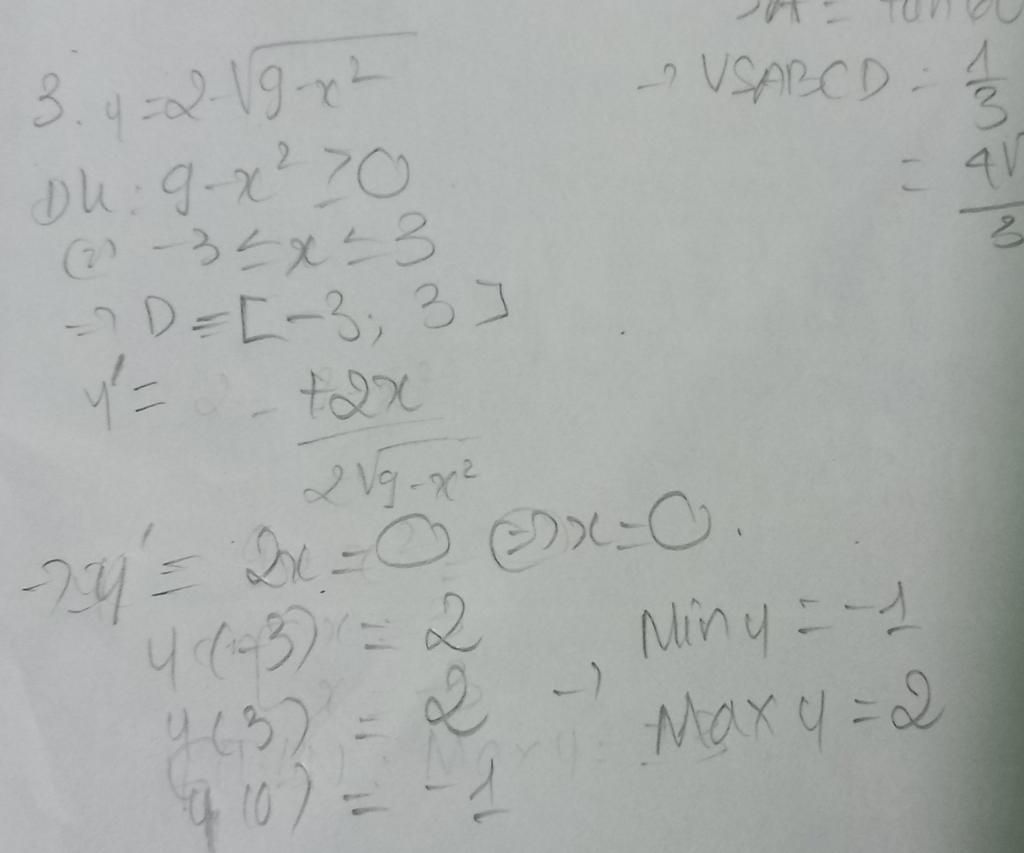 3. y = 2-√9-x²
ĐK: 9-x² ≥ 0
(=) -3 ≤ x ≤ 3
=> D = [-3; 3]
y' = - +2x / 2√9-x²
-> y' = 2x = 0 <=> x = 0.
y(-3) = 2
y(3) = 2
y(0) = -1
-> Min y = -1
Max y = 2
-> VSABCD = 1/3
= 4√ / 3